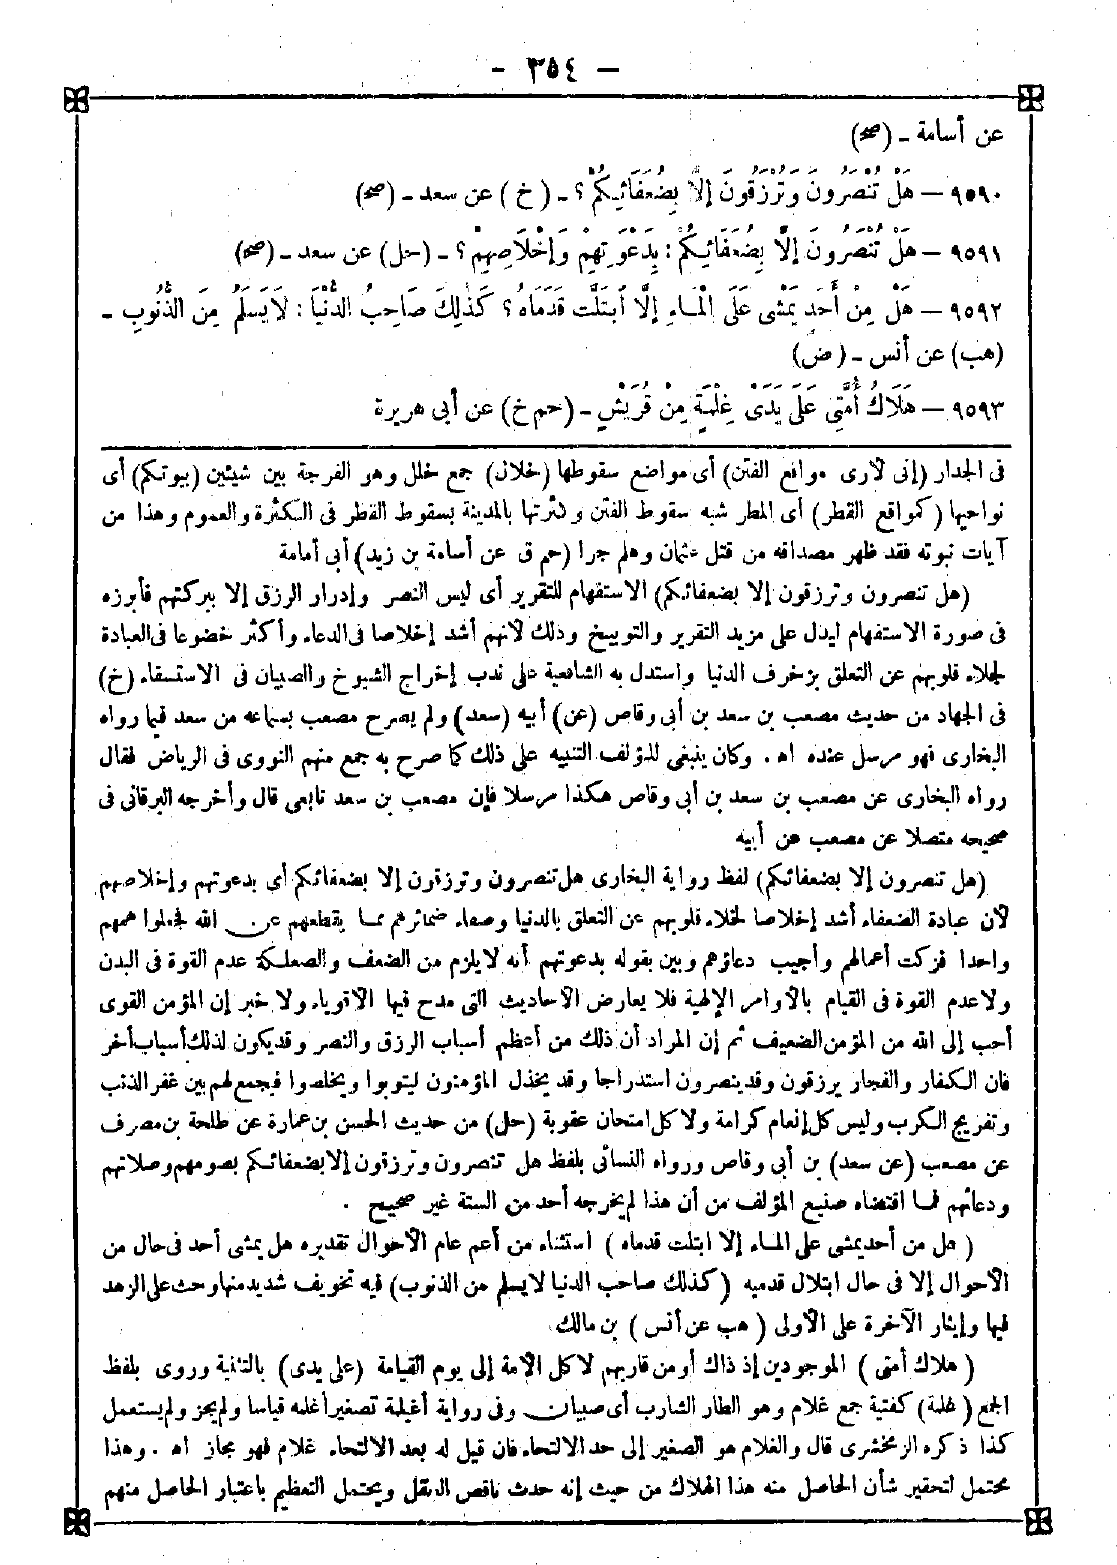 - ٣٥٤ -
عن أسامة - (صح)
٩٥٩٠ - هَلْ تُنْصَرُونَ وَتُرْزَقُونَ إِلَّا بِضُعَفَائِكُمْ؟ - (خ) عن سعد - (صح)
٩٥٩١ - هَلْ تُنْصَرُونَ إِلَّا بِضُعَفَائِكُمْ: بِدَعْوَتِهِمْ وَإِخْلَاصِهِمْ؟ - (حل) عن سعد - (صح)
٩٥٩٢ - هَلْ مِنْ أَحَدٍ يَمْشِى عَلَى الْمَاءِ إِلَّا ابْتَلَّت قَدَمَاهُ؟ كَذَلِكَ صَاحِبُ الدُّنْيَا: لَا يَسْلَمُ مِنَ الذُّنُوبِ -
(هب) عن أنس - (ض)
٩٥٩٣ - هَلَاكُ أُمَّتِى عَلَى يَدَىْ غِلْمَةٍ مِنْ قُرَيْشٍ - (حم خ) عن أبى هريرة
فى الجدار (إنى لأرى مواقع الفتن) أى مواضع سقوطها (خلال) جمع خلل وهو الفرجة بين شيئين (بيوتكم) أى
نواحيها (كمواقع القطر) أى المطر شبه سقوط الفتن وكثرتها بالمدينة بسقوط القطر فى الكثرة والعموم وهذا من
آيات نبوته فقد ظهر مصداقه من قتل عثمان وهلم جرا (حم ق عن أسامة بن زيد) أبى أمامة
(هل تنصرون وترزقون إلا بضعفائكم) الاستفهام للتقرير أى ليس النصر وإدرار الرزق إلا ببركتهم فأبرزه
فى صورة الاستفهام ليدل على مزيد التقرير والتوبيخ وذلك لأنهم أشد إخلاصا فى الدعاء وأكثر خضوعا فى العبادة
لجلاء قلوبهم عن التعلق بزخرف الدنيا واستدل به الشافعية على ندب إخراج الشيوخ والصبيان فى الاستسقاء (خ)
فى الجهاد من حديث مصعب بن سعد بن أبى وقاص (عن) أبيه (سعد) ولم يصرح مصعب بسماعه من سعد فيما رواه
البخارى فهو مرسل عنده اه. وكان ينبغى للمؤلف التنبيه على ذلك كما صرح به جمع منهم النووى فى الرياض فقال
رواه البخارى عن مصعب بن سعد بن أبى وقاص هكذا مرسلا فإن مصعب بن سعد تابعى قال وأخرجه البرقانى فى
صحيحه متصلا عن مصعب عن أبيه
(هل تنصرون إلا بضعفائكم) لفظ رواية البخارى هل تنصرون وترزقون إلا بضعفائكم أى بدعوتهم وإخلاصهم
لأن عبادة الضعفاء أشد إخلاصا لخلاء قلوبهم عن التعلق بالدنيا وصفاء ضمائرهم مما يقطعهم عن الله فجعلوا همهم
واحدا فزكت أعمالهم وأجيب دعاؤهم وبين بقوله بدعوتهم أنه لا يلزم من الضعف والصعلكة عدم القوة فى البدن
ولا عدم القوة فى القيام بالأوامر الإلهية فلا يعارض الأحاديث التى مدح فيها الأقوياء ولا خبر إن المؤمن القوى
أحب إلى الله من المؤمن الضعيف ثم إن المراد أن ذلك من أعظم أسباب الرزق والنصر وقد يكون لذلك أسباب أخر
فان الكفار والفجار يرزقون وقد ينصرون استدراجا وقد يخذل المؤمنون ليتوبوا ويخلصوا فيجمع لهم بين غفر الذنب
وتفريج الكرب وليس كل إنعام كرامة ولا كل امتحان عقوبة (حل) من حديث الحسن بن عمارة عن طلحة بن مصرف
عن مصعب (عن سعد) بن أبى وقاص ورواه النسائى بلفظ هل تنصرون وترزقون إلا بضعفائكم بصومهم وصلاتهم
ودعائهم فما اقتضاه صنيع المؤلف من أن هذا لم يخرجه أحد من الستة غير صحيح .
( هل من أحد يمشى على الماء إلا ابتلت قدماه ) استثناء من أعم عام الأحوال تقديره هل يمشى أحد فى حال من
الأحوال إلا فى حال ابتلال قدميه (كذلك صاحب الدنيا لا يسلم من الذنوب) فيه تخويف شديد منها وحث على الزهد
فيها وإيثار الآخرة على الأولى ( هب عن أنس ) بن مالك
( هلاك أمتى ) الموجودين إذ ذاك أو من قاربهم لا كل الأمة إلى يوم القيامة (على يدى) بالتثنية وروى بلفظ
الجمع (غلمة) كفتية جمع غلام وهو الطار الشارب أى صبيان وفى رواية أغيلمة تصغير أغلمه قياسا ولم يجز ولم يستعمل
كذا ذكره الزمخشرى قال والغلام هو الصغير إلى حد الالتحاء فان قيل له بعد الالتحاء غلام فهو مجاز اه . وهذا
محتمل لتحقير شأن الحاصل منه هذا الهلاك من حيث إنه حدث ناقص العقل ويحتمل التعظيم باعتبار الحاصل منهم